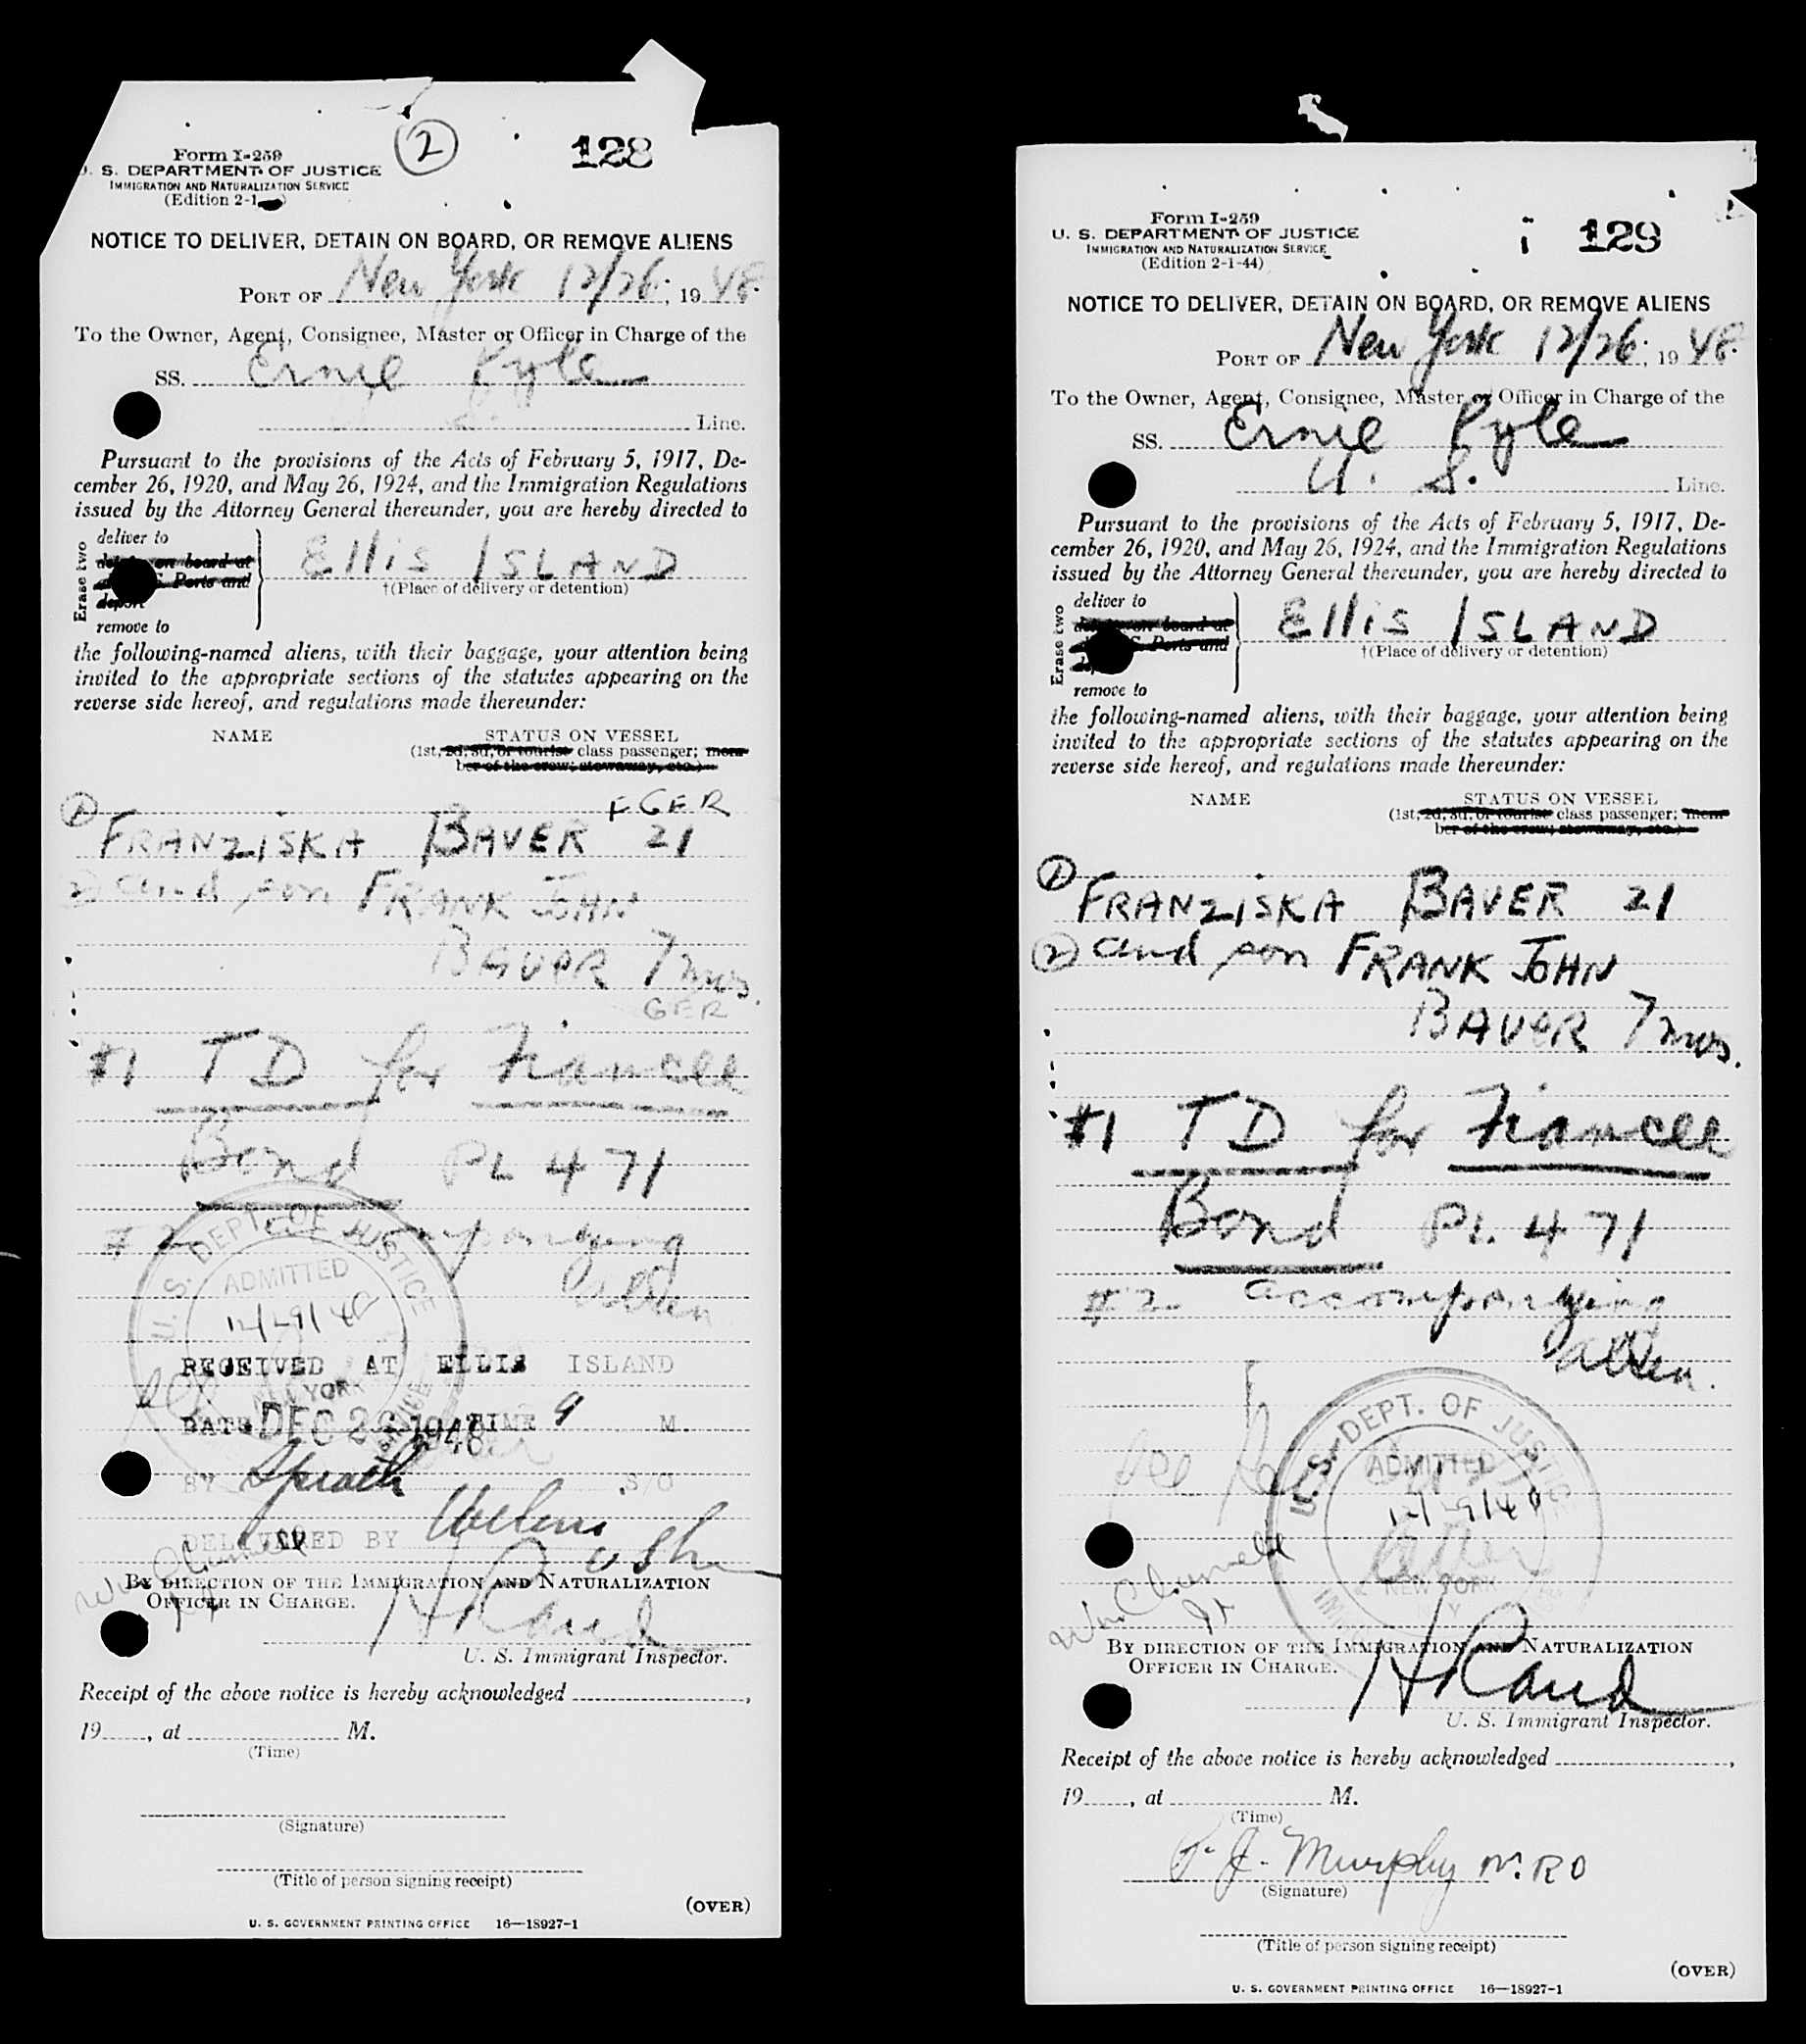 2
128
Form I-259
U. S. DEPARTMENT OF JUSTICE
IMMIGRATION AND NATURALIZATION SERVICE
(Edition 2-1
NOTICE TO DELIVER, DETAIN ON BOARD, OR REMOVE ALIENS
PORT OF New York 12/26, 1948
To the Owner, Agent, Consignee, Master or Officer in Charge of the
SS. Ernie Pyle
S. Line.
Pursuant to the provisions of the Acts of February 5, 1917, De-
cember 26, 1920, and May 26, 1924, and the Immigration Regulations
issued by the Attorney General thereunder, you are hereby directed to
Erase two
deliver to
on board at
Ports and
deport
remove to
Ellis ISLAND
†(Place of delivery or detention)
the following-named aliens, with their baggage, your attention being
invited to the appropriate sections of the statutes appearing on the
reverse side hereof, and regulations made thereunder:
NAME STATUS ON VESSEL
(1st, 2d, 3d, or tourist class passenger; mem-
ber of the crew; stowaway, etc.)
F GER
1 FRANZISKA BAVER 21
2 and son FRANK JOHN
BAUER 7 mos.
GER
#1 TD for Fiancee
Bond PL 471
#2 accompanying
alien
U. S. DEPT. OF JUSTICE
ADMITTED
12/29/48
NEW YORK
RECEIVED AT ELLIS ISLAND
DATE DEC 26 1948 TIME 9 M.
BY S/O
DELIVERED BY
BY DIRECTION OF THE IMMIGRATION AND NATURALIZATION
OFFICER IN CHARGE.
H Rand
U. S. Immigrant Inspector.
Receipt of the above notice is hereby acknowledged ,
19 , at M.
(Time)
(Signature)
(Title of person signing receipt)
(OVER)
U. S. GOVERNMENT PRINTING OFFICE 16—18927-1
129
Form I-259
U. S. DEPARTMENT OF JUSTICE
IMMIGRATION AND NATURALIZATION SERVICE
(Edition 2-1-44)
NOTICE TO DELIVER, DETAIN ON BOARD, OR REMOVE ALIENS
PORT OF New York 12/26, 1948
To the Owner, Agent, Consignee, Master or Officer in Charge of the
SS. Ernie Pyle
U. S. Line.
Pursuant to the provisions of the Acts of February 5, 1917, De-
cember 26, 1920, and May 26, 1924, and the Immigration Regulations
issued by the Attorney General thereunder, you are hereby directed to
Erase two
deliver to
on board at
Ports and
remove to
Ellis ISLAND
†(Place of delivery or detention)
the following-named aliens, with their baggage, your attention being
invited to the appropriate sections of the statutes appearing on the
reverse side hereof, and regulations made thereunder:
NAME STATUS ON VESSEL
(1st, 2d, 3d, or tourist class passenger; mem-
ber of the crew; stowaway, etc.)
1 FRANZISKA BAVER 21
2 and son FRANK JOHN
BAUER 7 mos.
#1 TD for Fiancee
Bond PL. 471
#2 accompanying
alien.
U. S. DEPT. OF JUSTICE
ADMITTED
12/29/48
NEW YORK
N Y
BY DIRECTION OF THE IMMIGRATION AND NATURALIZATION
OFFICER IN CHARGE.
H Rand
U. S. Immigrant Inspector.
Receipt of the above notice is hereby acknowledged ,
19 , at M.
(Time)
P. J. Murphy
(Signature)
(Title of person signing receipt)
(OVER)
U. S. GOVERNMENT PRINTING OFFICE 16—18927-1